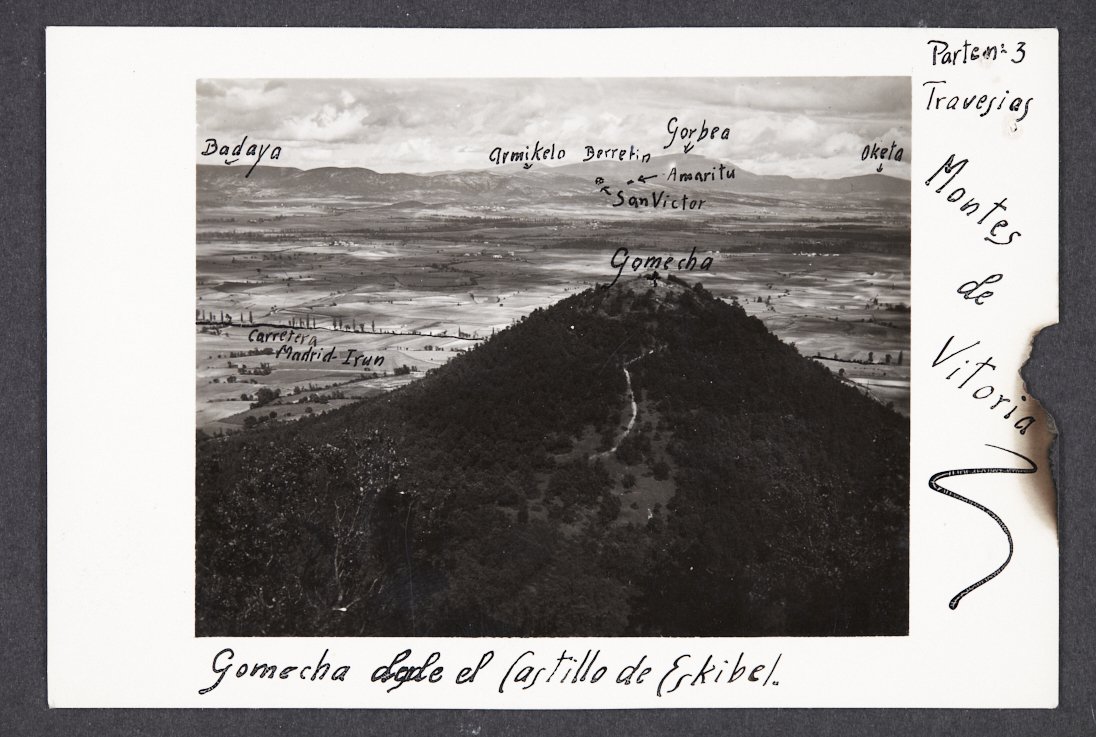 Parte nº 3
Travesias
Montes
de
Vitoria
Badaya
Armikelo
Berretin
Gorbea
Oketa
Amaritu
San Victor
Gomecha
Carretera
Madrid-Irun
Gomecha desde el Castillo de Eskibel.